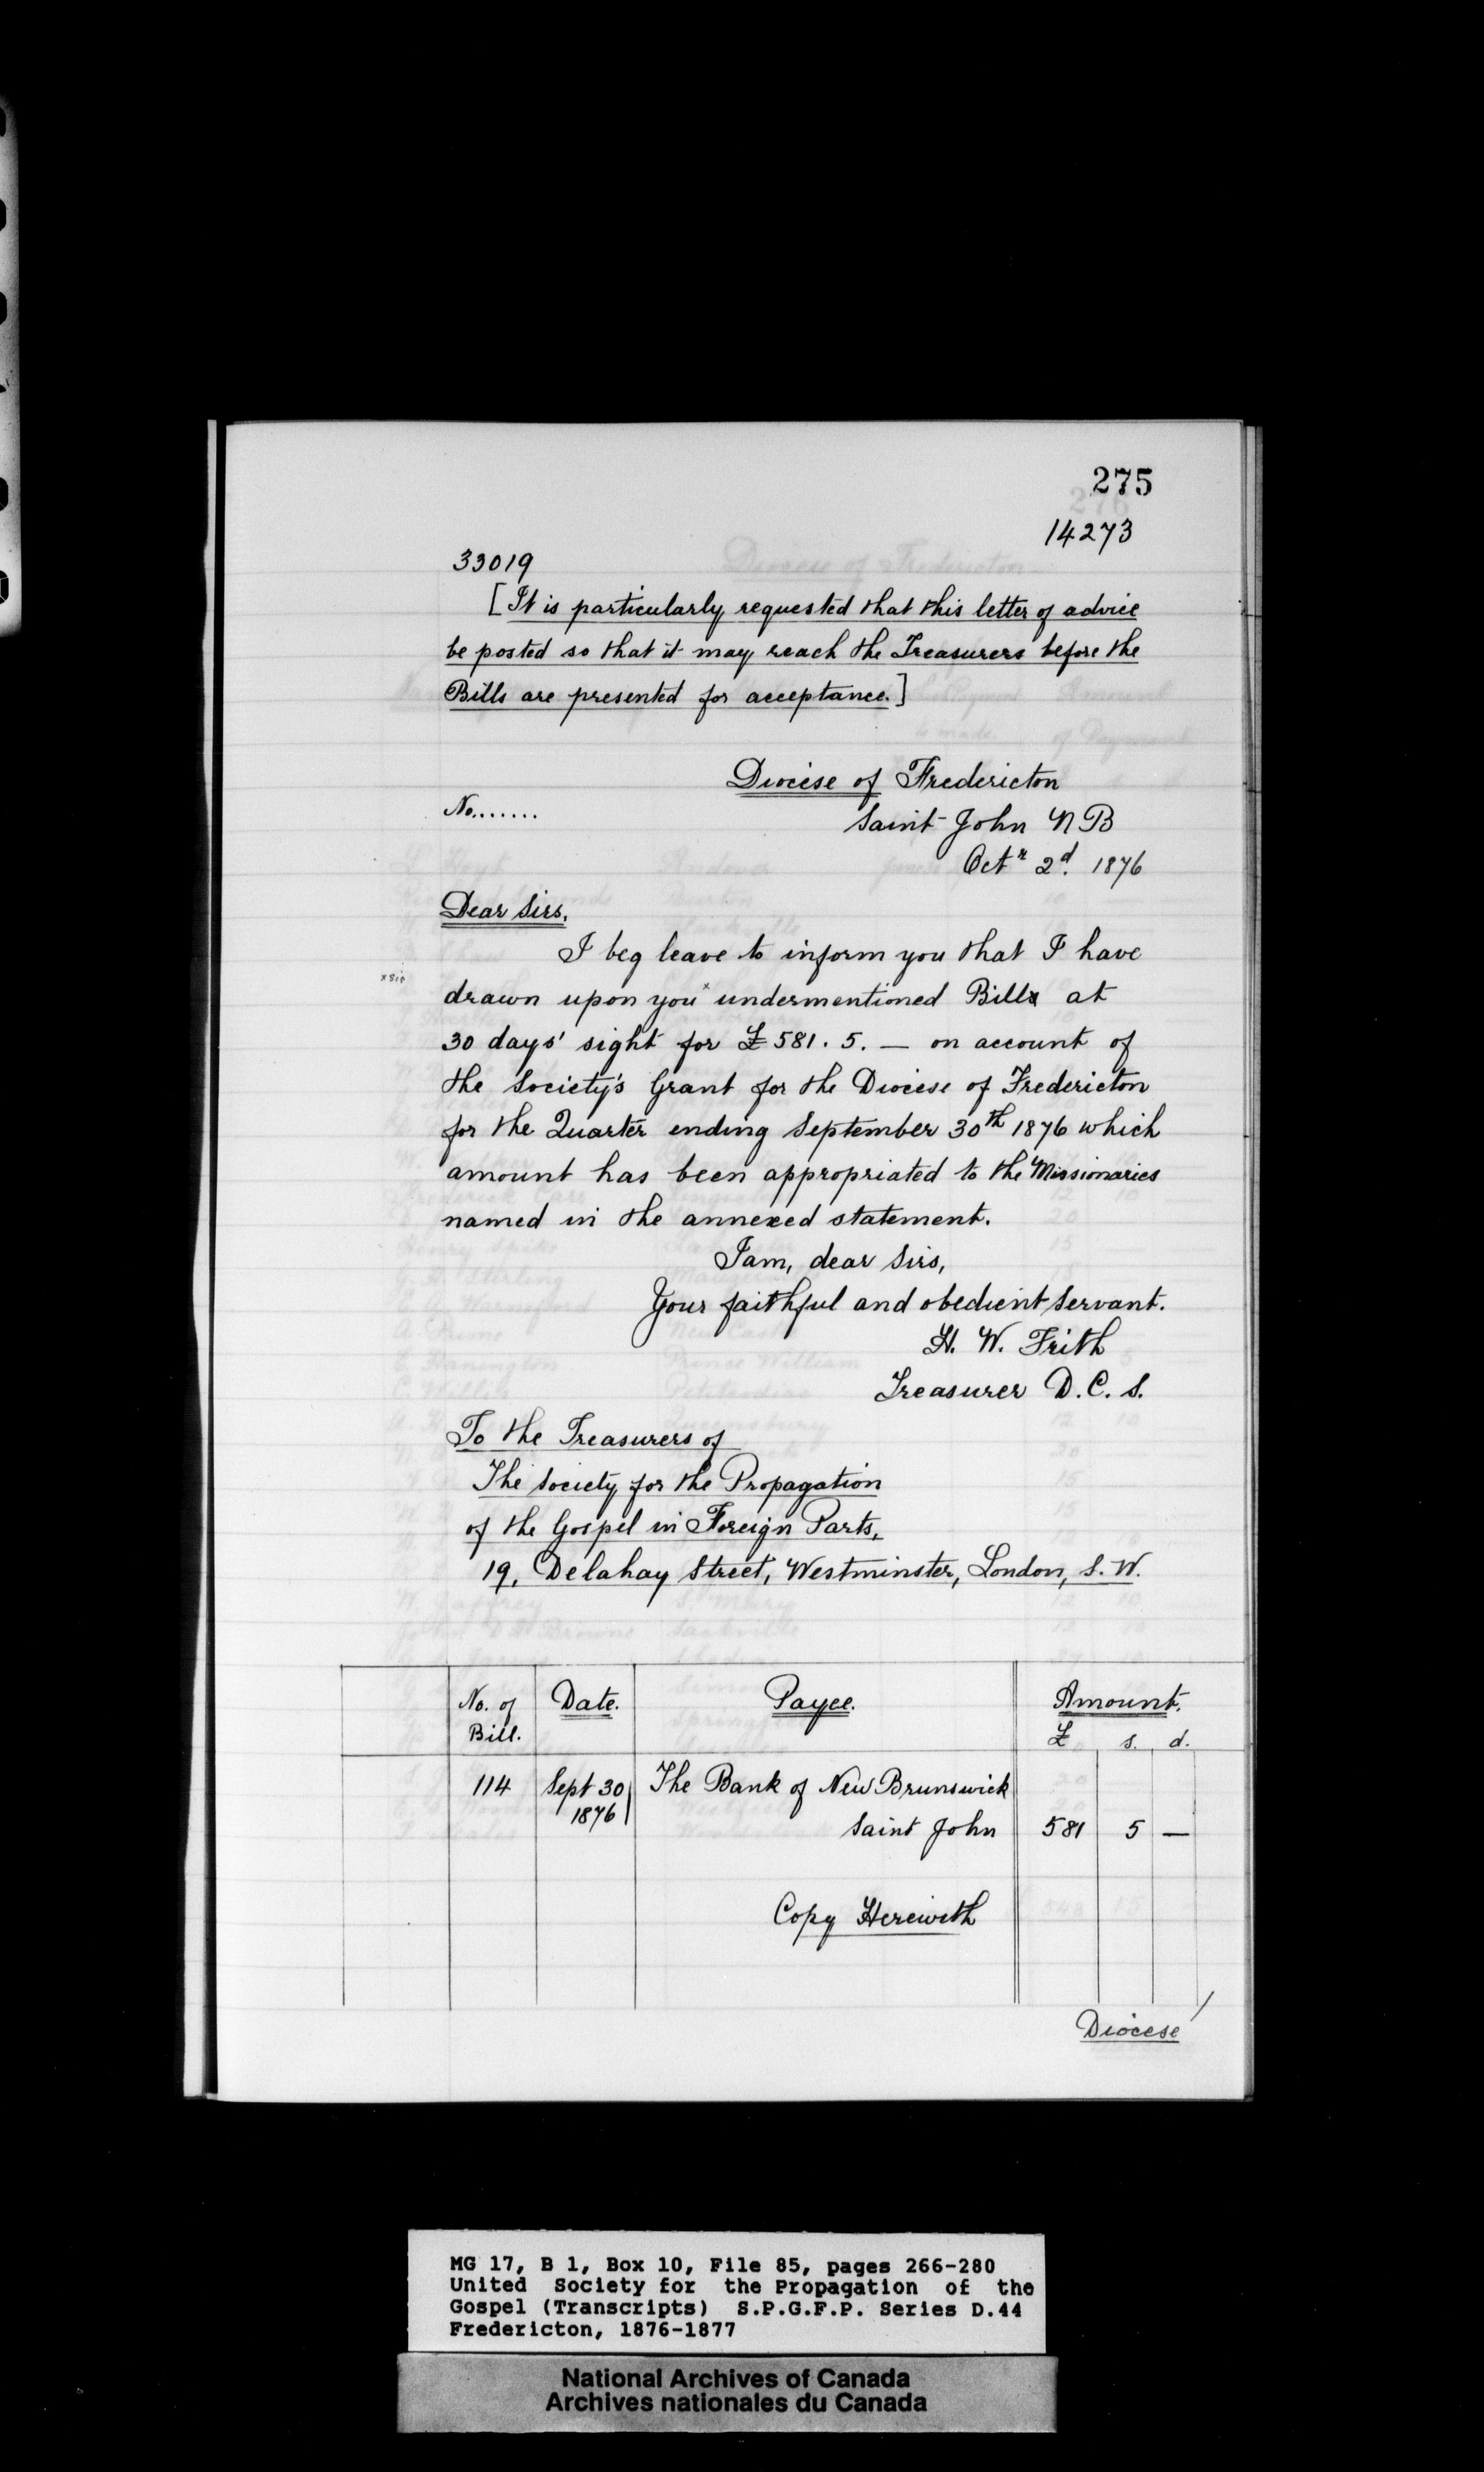 275
14273
33019
[It is particularly requested that this letter of advice
be posted so that it may reach the Treasurers before the
Bills are presented for acceptance.]
Diocese of Fredericton
No.......
Saint John N B
Octr 2d. 1876
Dear Sirs,
I beg leave to inform you that I have
x Sic
drawn upon you x undermentioned Bills at
30 days' sight for £581. 5. — on account of
the Society's Grant for the Diocese of Fredericton
for the Quarter ending September 30th 1876 which
amount has been appropriated to the Missionaries
named in the annexed statement.
I am, dear Sirs,
Your faithful and obedient Servant.
H. W. Frith
Treasurer D. C. S.
To the Treasurers of
The Society for the Propagation
of the Gospel in Foreign Parts,
19, Delahay Street, Westminster, London, S. W.
No. of Bill. Date. Payee. Amount.
£ s. d.
114 Sept 30 The Bank of New Brunswick
1876 Saint John 581 5 —
Copy Herewith
Diocese
MG 17, B 1, Box 10, File 85, pages 266-280
United Society for the Propagation of the
Gospel (Transcripts) S.P.G.F.P. Series D.44
Fredericton, 1876-1877
National Archives of Canada
Archives nationales du Canada